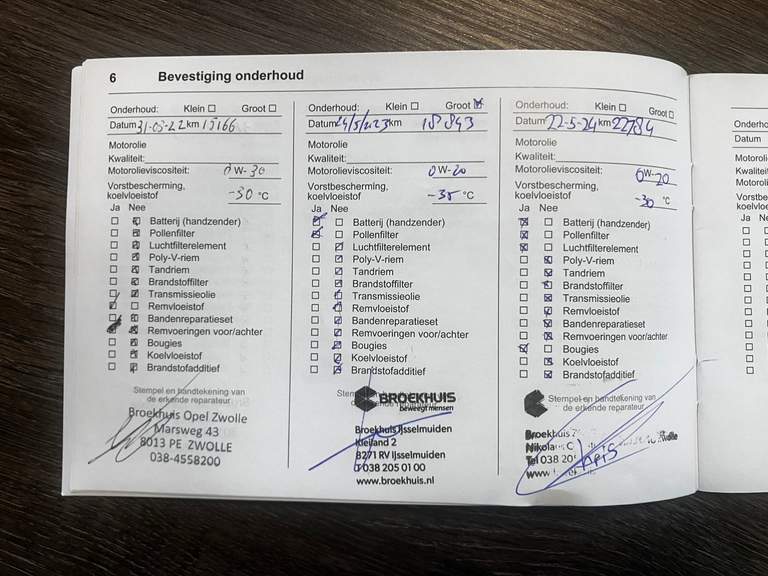 6 Bevestiging onderhoud
Onderhoud: Klein ☐ Groot ☐
Datum 31-03-22 km 15166
Motorolie
Kwaliteit:
Motorolieviscositeit: 0W-30
Vorstbescherming,
koelvloeistof -30 °C
Ja Nee
Batterij (handzender)
Pollenfilter
Luchtfilterelement
Poly-V-riem
Tandriem
Brandstoffilter
Transmissieolie
Remvloeistof
Bandenreparatieset
Remvoeringen voor/achter
Bougies
Koelvloeistof
Brandstofadditief
Stempel en handtekening van
de erkende reparateur
Broekhuis Opel Zwolle
Marsweg 43
8013 PE ZWOLLE
038-4558200
Onderhoud: Klein ☐ Groot ☒
Datum 24/5/2023 km 18843
Motorolie
Kwaliteit:
Motorolieviscositeit: 0W-20
Vorstbescherming,
koelvloeistof -35 °C
Ja Nee
Batterij (handzender)
Pollenfilter
Luchtfilterelement
Poly-V-riem
Tandriem
Brandstoffilter
Transmissieolie
Remvloeistof
Bandenreparatieset
Remvoeringen voor/achter
Bougies
Koelvloeistof
Brandstofadditief
BROEKHUIS
beweegt mensen
Broekhuis IJsselmuiden
Kieiland 2
8271 RV IJsselmuiden
T 038 205 01 00
www.broekhuis.nl
Onderhoud: Klein ☐ Groot ☐
Datum 22-5-24 km 22784
Motorolie
Kwaliteit:
Motorolieviscositeit: 0W-20
Vorstbescherming,
koelvloeistof -30 °C
Ja Nee
Batterij (handzender)
Pollenfilter
Luchtfilterelement
Poly-V-riem
Tandriem
Brandstoffilter
Transmissieolie
Remvloeistof
Bandenreparatieset
Remvoeringen voor/achter
Bougies
Koelvloeistof
Brandstofadditief
Stempel en handtekening van
de erkende reparateur
Broekhuis
Zwolle
Tel 038
www
Datum
Ja